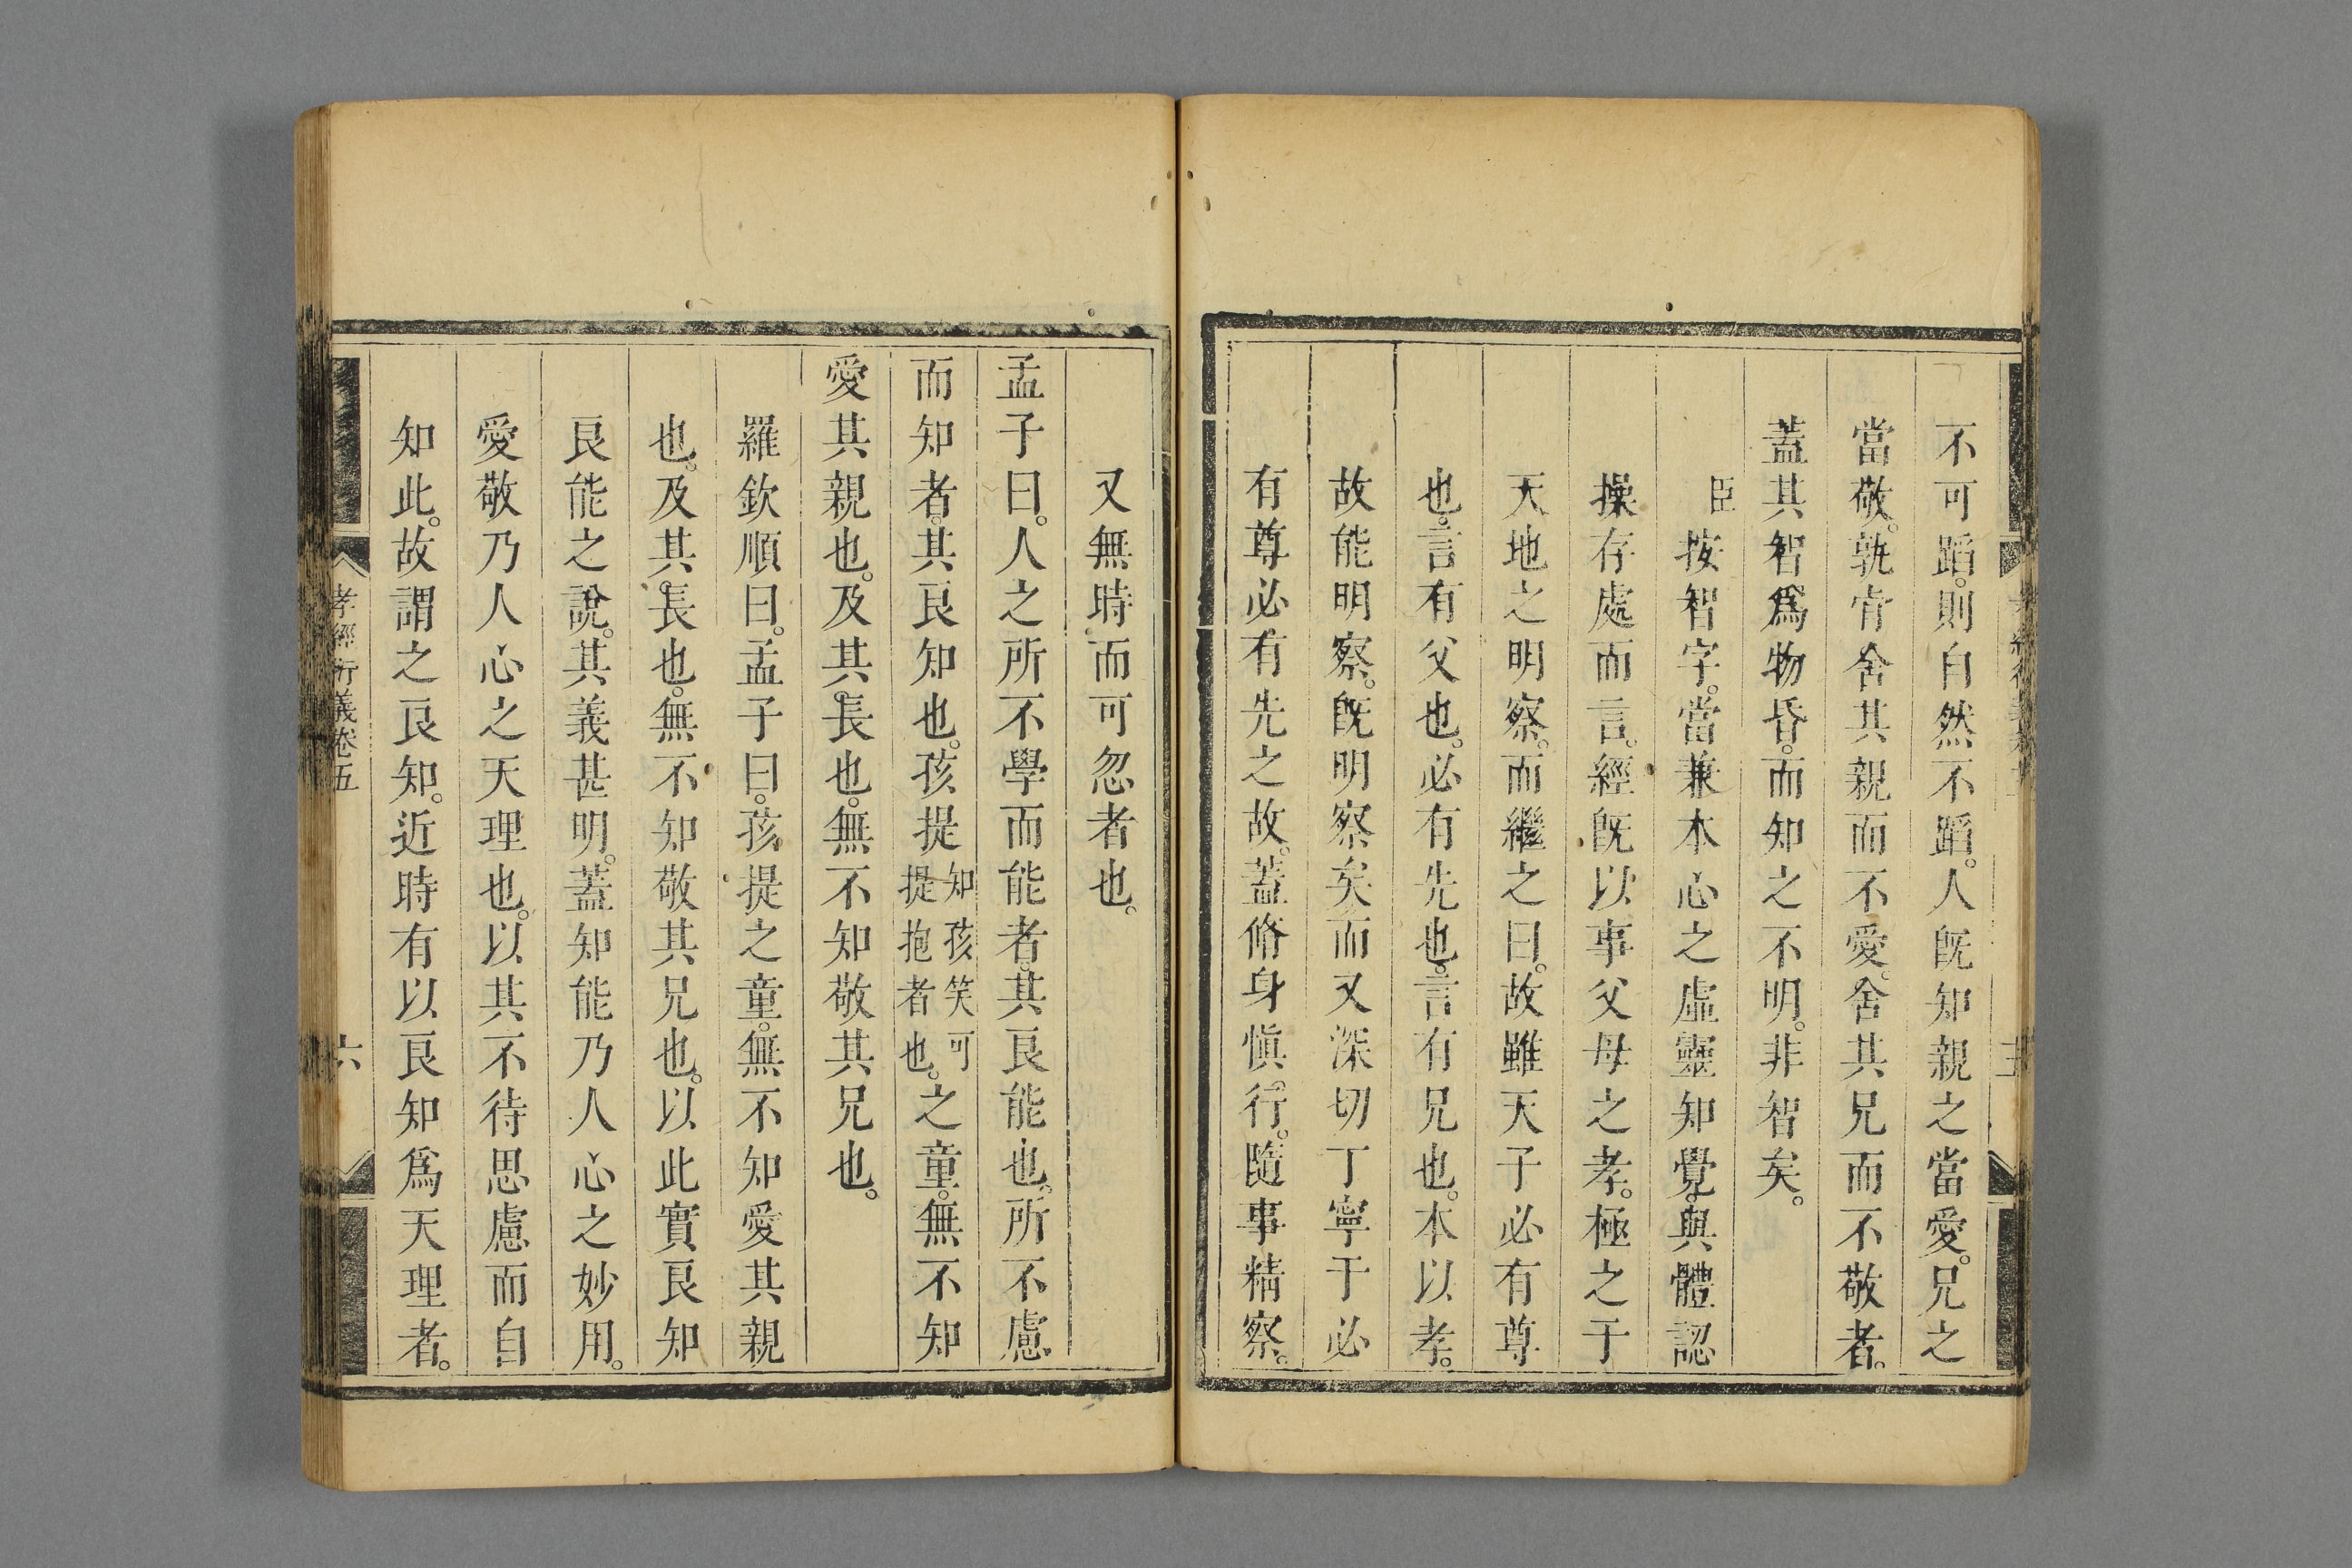 不可蹈。則自然不蹈。人旣知親之當愛。兄之
當敬。孰肯舍其親而不愛。舍其兄而不敬者。
蓋其智爲物昏。而知之不明。非智矣。
臣按智字。當兼本心之虛靈知覺。與體認
操存處而言。經旣以事父母之孝。極之于
天地之明察。而繼之曰。故雖天子必有尊
也。言有父也。必有先也。言有兄也。本以孝。
故能明察。旣明察矣。而又深切丁寧于必
有尊必有先之故。蓋脩身愼。行。隨事精察。
又無時而可忽者也。
孟子曰。人之所不學而能者。其良能也。所不慮
而知者。其良知也。孩提知孩笑可提抱者也。之童。無不知
愛其親也。及其長也。無不知敬其兄也。
羅欽順曰。孟子曰。孩提之童。無不知愛其親
也。及其長也。無不知敬其兄也。以此實良知
良能之說。其義甚明。蓋知能乃人心之妙用。
愛敬乃人心之天理也。以其不待思慮而自
知此。故謂之良知。近時有以良知爲天理者。
孝經衍義卷五
六